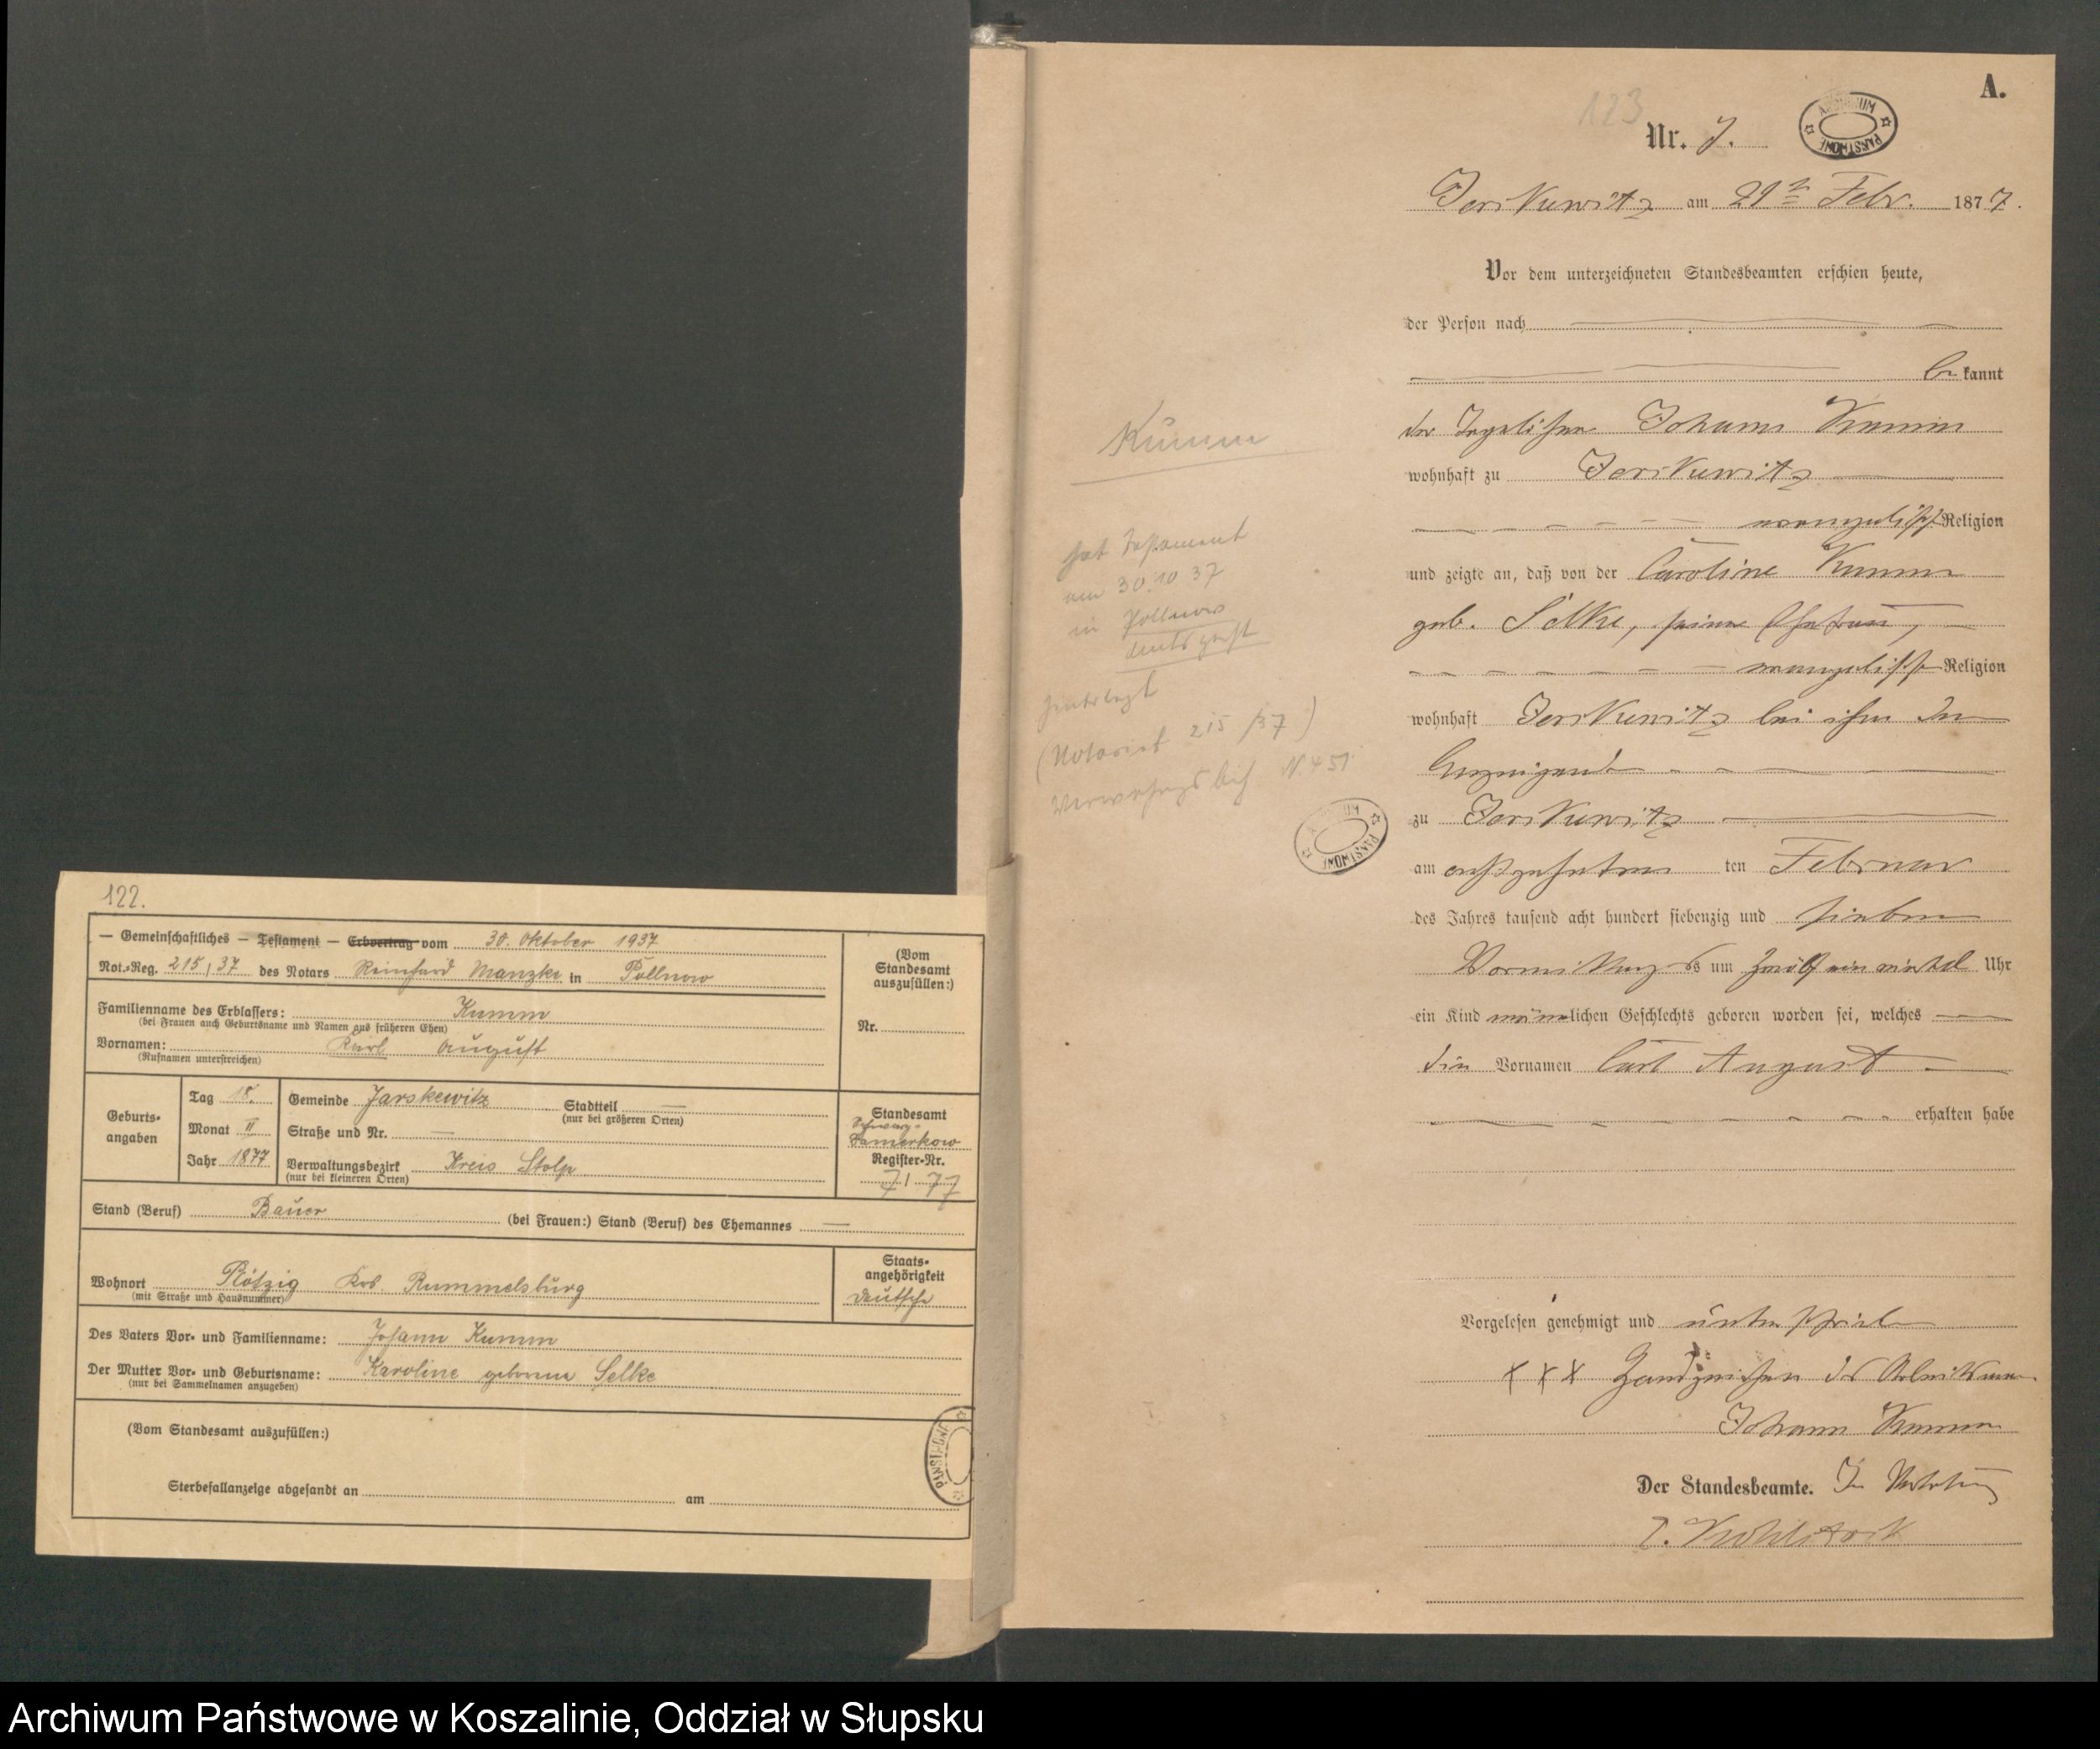 122.
— Gemeinschaftliches — Testament — Erbvertrag vom 30. Oktober 1937
Not.-Reg. 215 / 37 des Notars Reinhard Manzke in Pollnow
Familienname des Erblassers: Kumm
(bei Frauen auch Geburtsname und Namen aus früheren Ehen)
Vornamen: Karl August
(Rufnamen unterstreichen)
(Vom
Standesamt
auszufüllen:)
Nr.
Geburts-
angaben
Tag 18.
Monat II
Jahr 1877
Gemeinde Jarskewitz Stadtteil —
(nur bei größeren Orten)
Straße und Nr. —
Verwaltungsbezirk Kreis Stolp
(nur bei kleineren Orten)
Standesamt
Schwarz-
Damerkow
Register-Nr.
7 / 77
Stand (Beruf) Bauer (bei Frauen:) Stand (Beruf) des Ehemannes —
Wohnort Plötzig Krs. Rummelsburg
(mit Straße und Hausnummer)
Staats-
angehörigkeit
deutsche
Des Vaters Vor- und Familienname: Johann Kumm
Der Mutter Vor- und Geburtsname: Karoline geborene Selke
(nur bei Sammelnamen anzugeben)
(Vom Standesamt auszufüllen:)
Sterbefallanzeige abgesandt an am
PAŃSTWOWE
Kumm
hat Testament
am 30.10 37
in Pollnow
Amtsgericht
hinterlegt
(Notariat 215/37)
Verwahrgsbuch N. 451
ARCHIWUM PAŃSTWOWE
A.
123
Nr. 7.
ARCHIWUM PAŃSTWOWE
Jerskewitz am 21ten Febr. 1877.
Vor dem unterzeichneten Standesbeamten erschien heute,
der Person nach
be kannt
der Johann Kumm
wohnhaft zu Jerskewitz
evangelischer Religion
und zeigte an, daß von der Caroline Kumm
geb. Selke, seiner Ehefrau,
evangelischer Religion
wohnhaft Jerskewitz bei ihm dem
Anzeigenden
zu Jerskewitz
am achtzehnten ten Februar
des Jahres tausend acht hundert siebenzig und sieben
Vormittags um zwölf ein viertel Uhr
ein Kind männlichen Geschlechts geboren worden sei, welches
die Vornamen Carl August
erhalten habe
Vorgelesen genehmigt und unterschrieben
x x x Handzeichen des Arbeitsmann
Johann Kumm
Der Standesbeamte. In Vertretung
Archiwum Państwowe w Koszalinie, Oddział w Słupsku